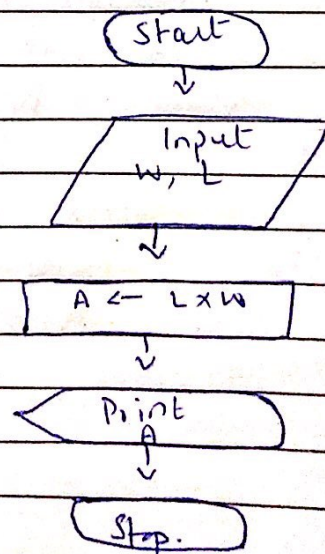 Start
Input
W, L
A ← L x W
Print
A
Stop.